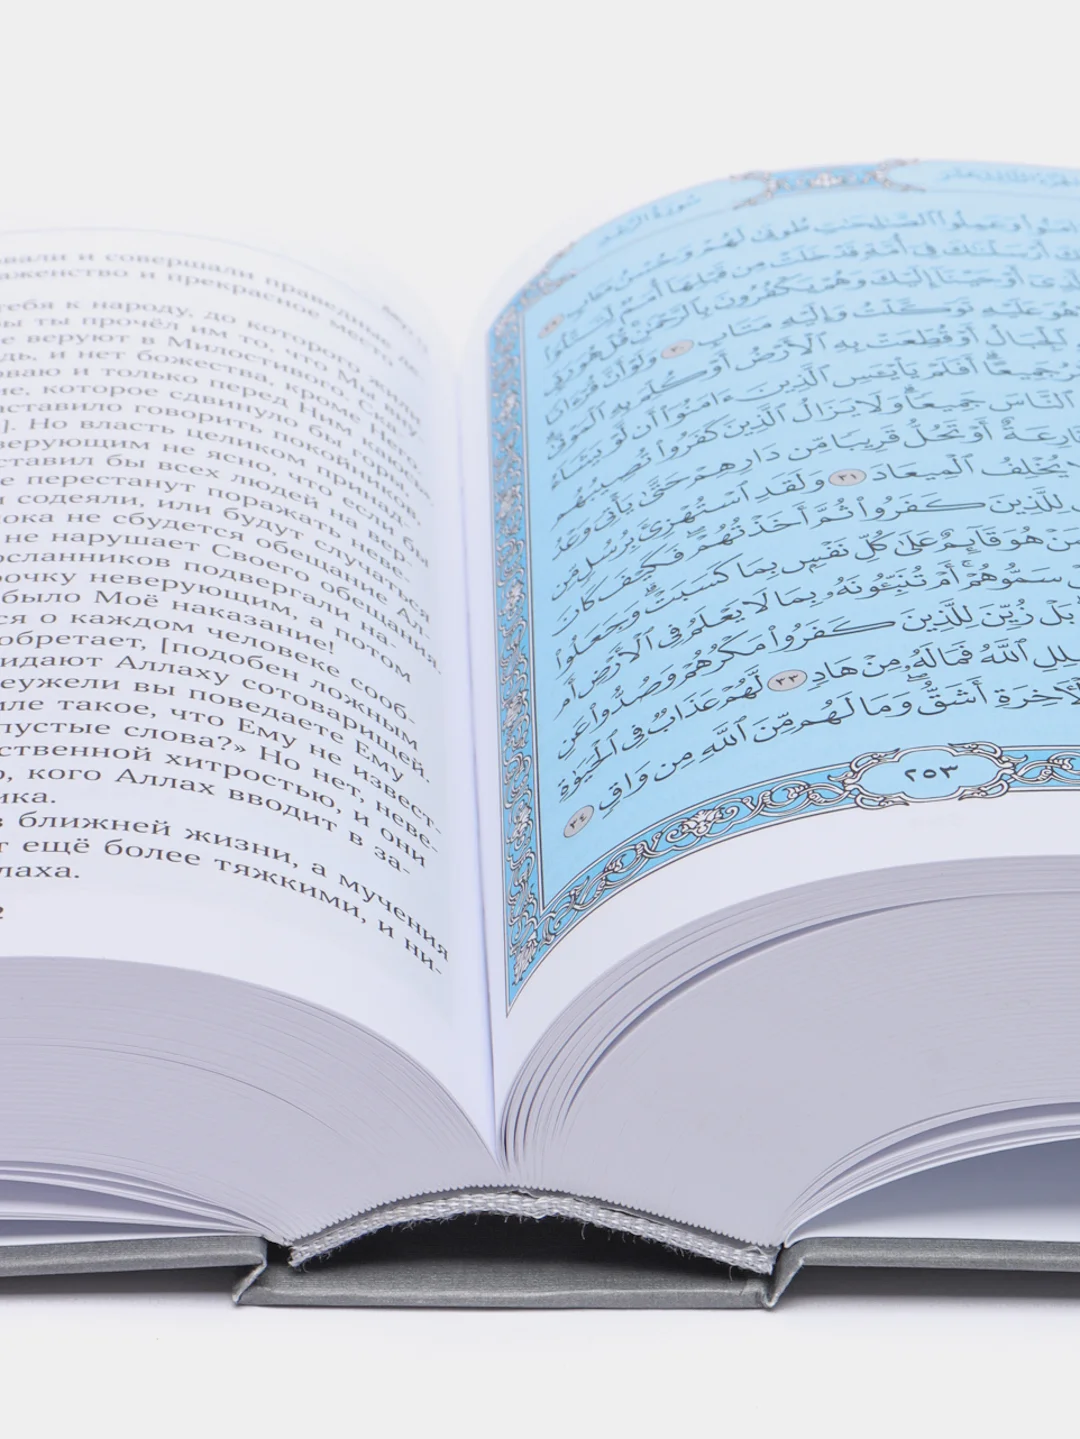 овали и совершали праведные де-
аженство и прекрасное место
тебя к народу, до которого жили
бы ты прочёл им то, что Мы вну-
е веруют в Милостивого. Скажи:
дь, и нет божества, кроме Него.
оваю и только перед Ним каюсь
ие, которое сдвинуло бы горы,
аставило говорить покойников.
]. Но власть целиком принад-
верующим не ясно, что если бы
ставил бы всех людей на вер-
е перестанут поражать неве-
и содеяли, или будут случаться
пока не сбудется обещание Ал-
не нарушает Своего обещания.
осланников подвергали на-
рочку неверующим, а потом
было Моё наказание!
ся о каждом человеке сооб-
обретает, [подобен ложным
идают Аллаху сотоварищей.
еужели вы поведаете Ему
мле такое, что Ему не извест-
пустые слова?» Но нет, неве-
ственной хитростью, и они
о, кого Аллах вводит в за-
ика.
в ближней жизни, а мучения
т ещё более тяжкими, и ни-
лаха.
2
سُورَةُ الرَّعْدِ
ءَامَنُوا۟ وَعَمِلُوا۟ ٱلصَّٰلِحَٰتِ طُوبَىٰ لَهُمْ وَحُسْنُ مَـَٔابٍ ٢٩
أَرْسَلْنَٰكَ فِىٓ أُمَّةٍ قَدْ خَلَتْ مِن قَبْلِهَآ أُمَمٌ لِّتَتْلُوَا۟
أَوْحَيْنَآ إِلَيْكَ وَهُمْ يَكْفُرُونَ بِٱلرَّحْمَٰنِ قُلْ هُوَ رَبِّى
هُوَ عَلَيْهِ تَوَكَّلْتُ وَإِلَيْهِ مَتَابِ ٣٠ وَلَوْ أَنَّ قُرْءَانًا
ٱلْجِبَالُ أَوْ قُطِّعَتْ بِهِ ٱلْأَرْضُ أَوْ كُلِّمَ بِهِ ٱلْمَوْتَىٰ
جَمِيعًا ۗ أَفَلَمْ يَا۟يْـَٔسِ ٱلَّذِينَ ءَامَنُوٓا۟ أَن لَّوْ يَشَآءُ
ٱلنَّاسَ جَمِيعًا ۗ وَلَا يَزَالُ ٱلَّذِينَ كَفَرُوا۟ تُصِيبُهُم
قَارِعَةٌ أَوْ تَحُلُّ قَرِيبًا مِّن دَارِهِمْ حَتَّىٰ يَأْتِىَ وَعْدُ
لَا يُخْلِفُ ٱلْمِيعَادَ ٣١ وَلَقَدِ ٱسْتُهْزِئَ بِرُسُلٍ مِّن
لِلَّذِينَ كَفَرُوا۟ ثُمَّ أَخَذْتُهُمْ ۖ فَكَيْفَ كَانَ
مَنْ هُوَ قَآئِمٌ عَلَىٰ كُلِّ نَفْسٍۭ بِمَا كَسَبَتْ ۗ وَجَعَلُوا۟
سَمُّوهُمْ ۚ أَمْ تُنَبِّـُٔونَهُۥ بِمَا لَا يَعْلَمُ فِى ٱلْأَرْضِ أَم
بَلْ زُيِّنَ لِلَّذِينَ كَفَرُوا۟ مَكْرُهُمْ وَصُدُّوا۟ عَنِ
يُضْلِلِ ٱللَّهُ فَمَا لَهُۥ مِنْ هَادٍ ٣٣ لَّهُمْ عَذَابٌ فِى ٱلْحَيَوٰةِ
ٱلْأَخِرَةِ أَشَقُّ ۖ وَمَا لَهُم مِّنَ ٱللَّهِ مِن وَاقٍ ٣٤
٢٥٣